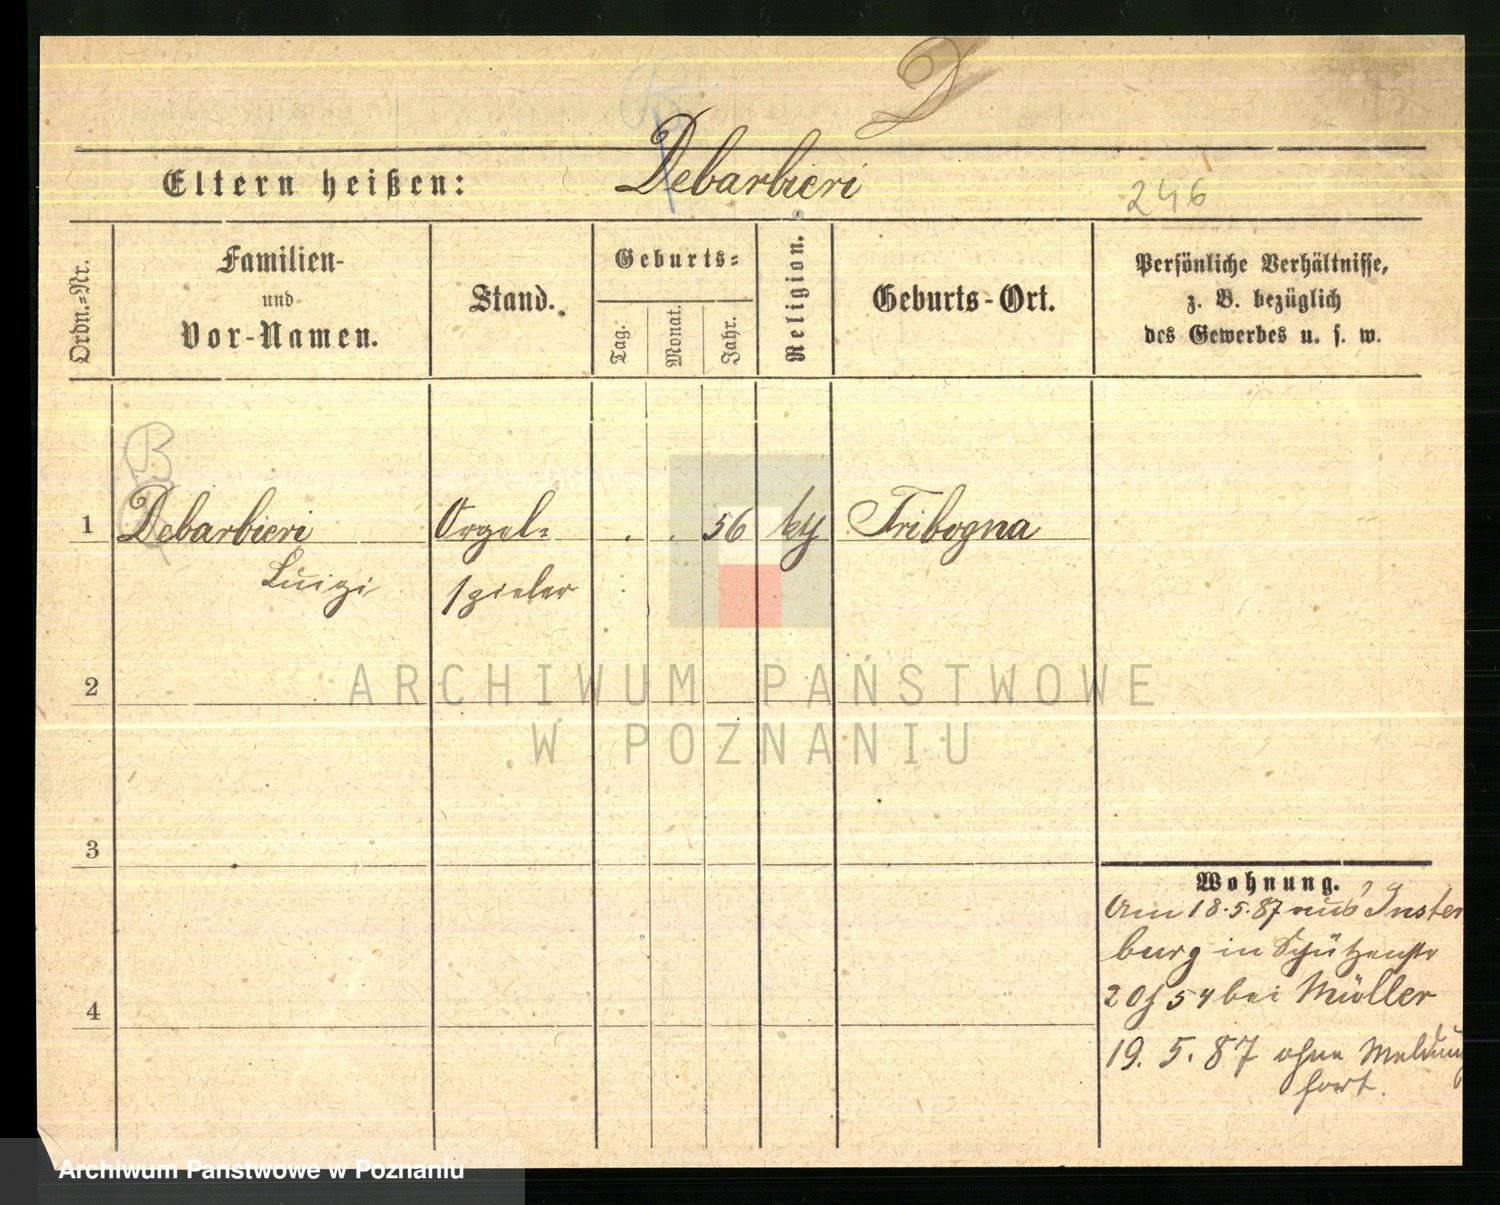 D
Eltern heißen: Debarbieri
246
Ordn.=Nr.
Familien-
und
Vor-Namen.
Stand.
Geburts=
Tag.
Monat.
Jahr.
Religion.
Geburts-Ort.
Persönliche Verhältnisse,
z. B. bezüglich
des Gewerbes u. s. w.
B
1 Debarbieri Orgel= . . 56 Tribogna
Luigi spieler
ARCHIWUM PAŃSTWOWE
W POZNANIU
2
3
4
Wohnung.
Am 18.5.87 aus Inster
burg in Schützenstr
bei Müller
19. 5. 87 ohne Meldung
fort.
Archiwum Państwowe w Poznaniu